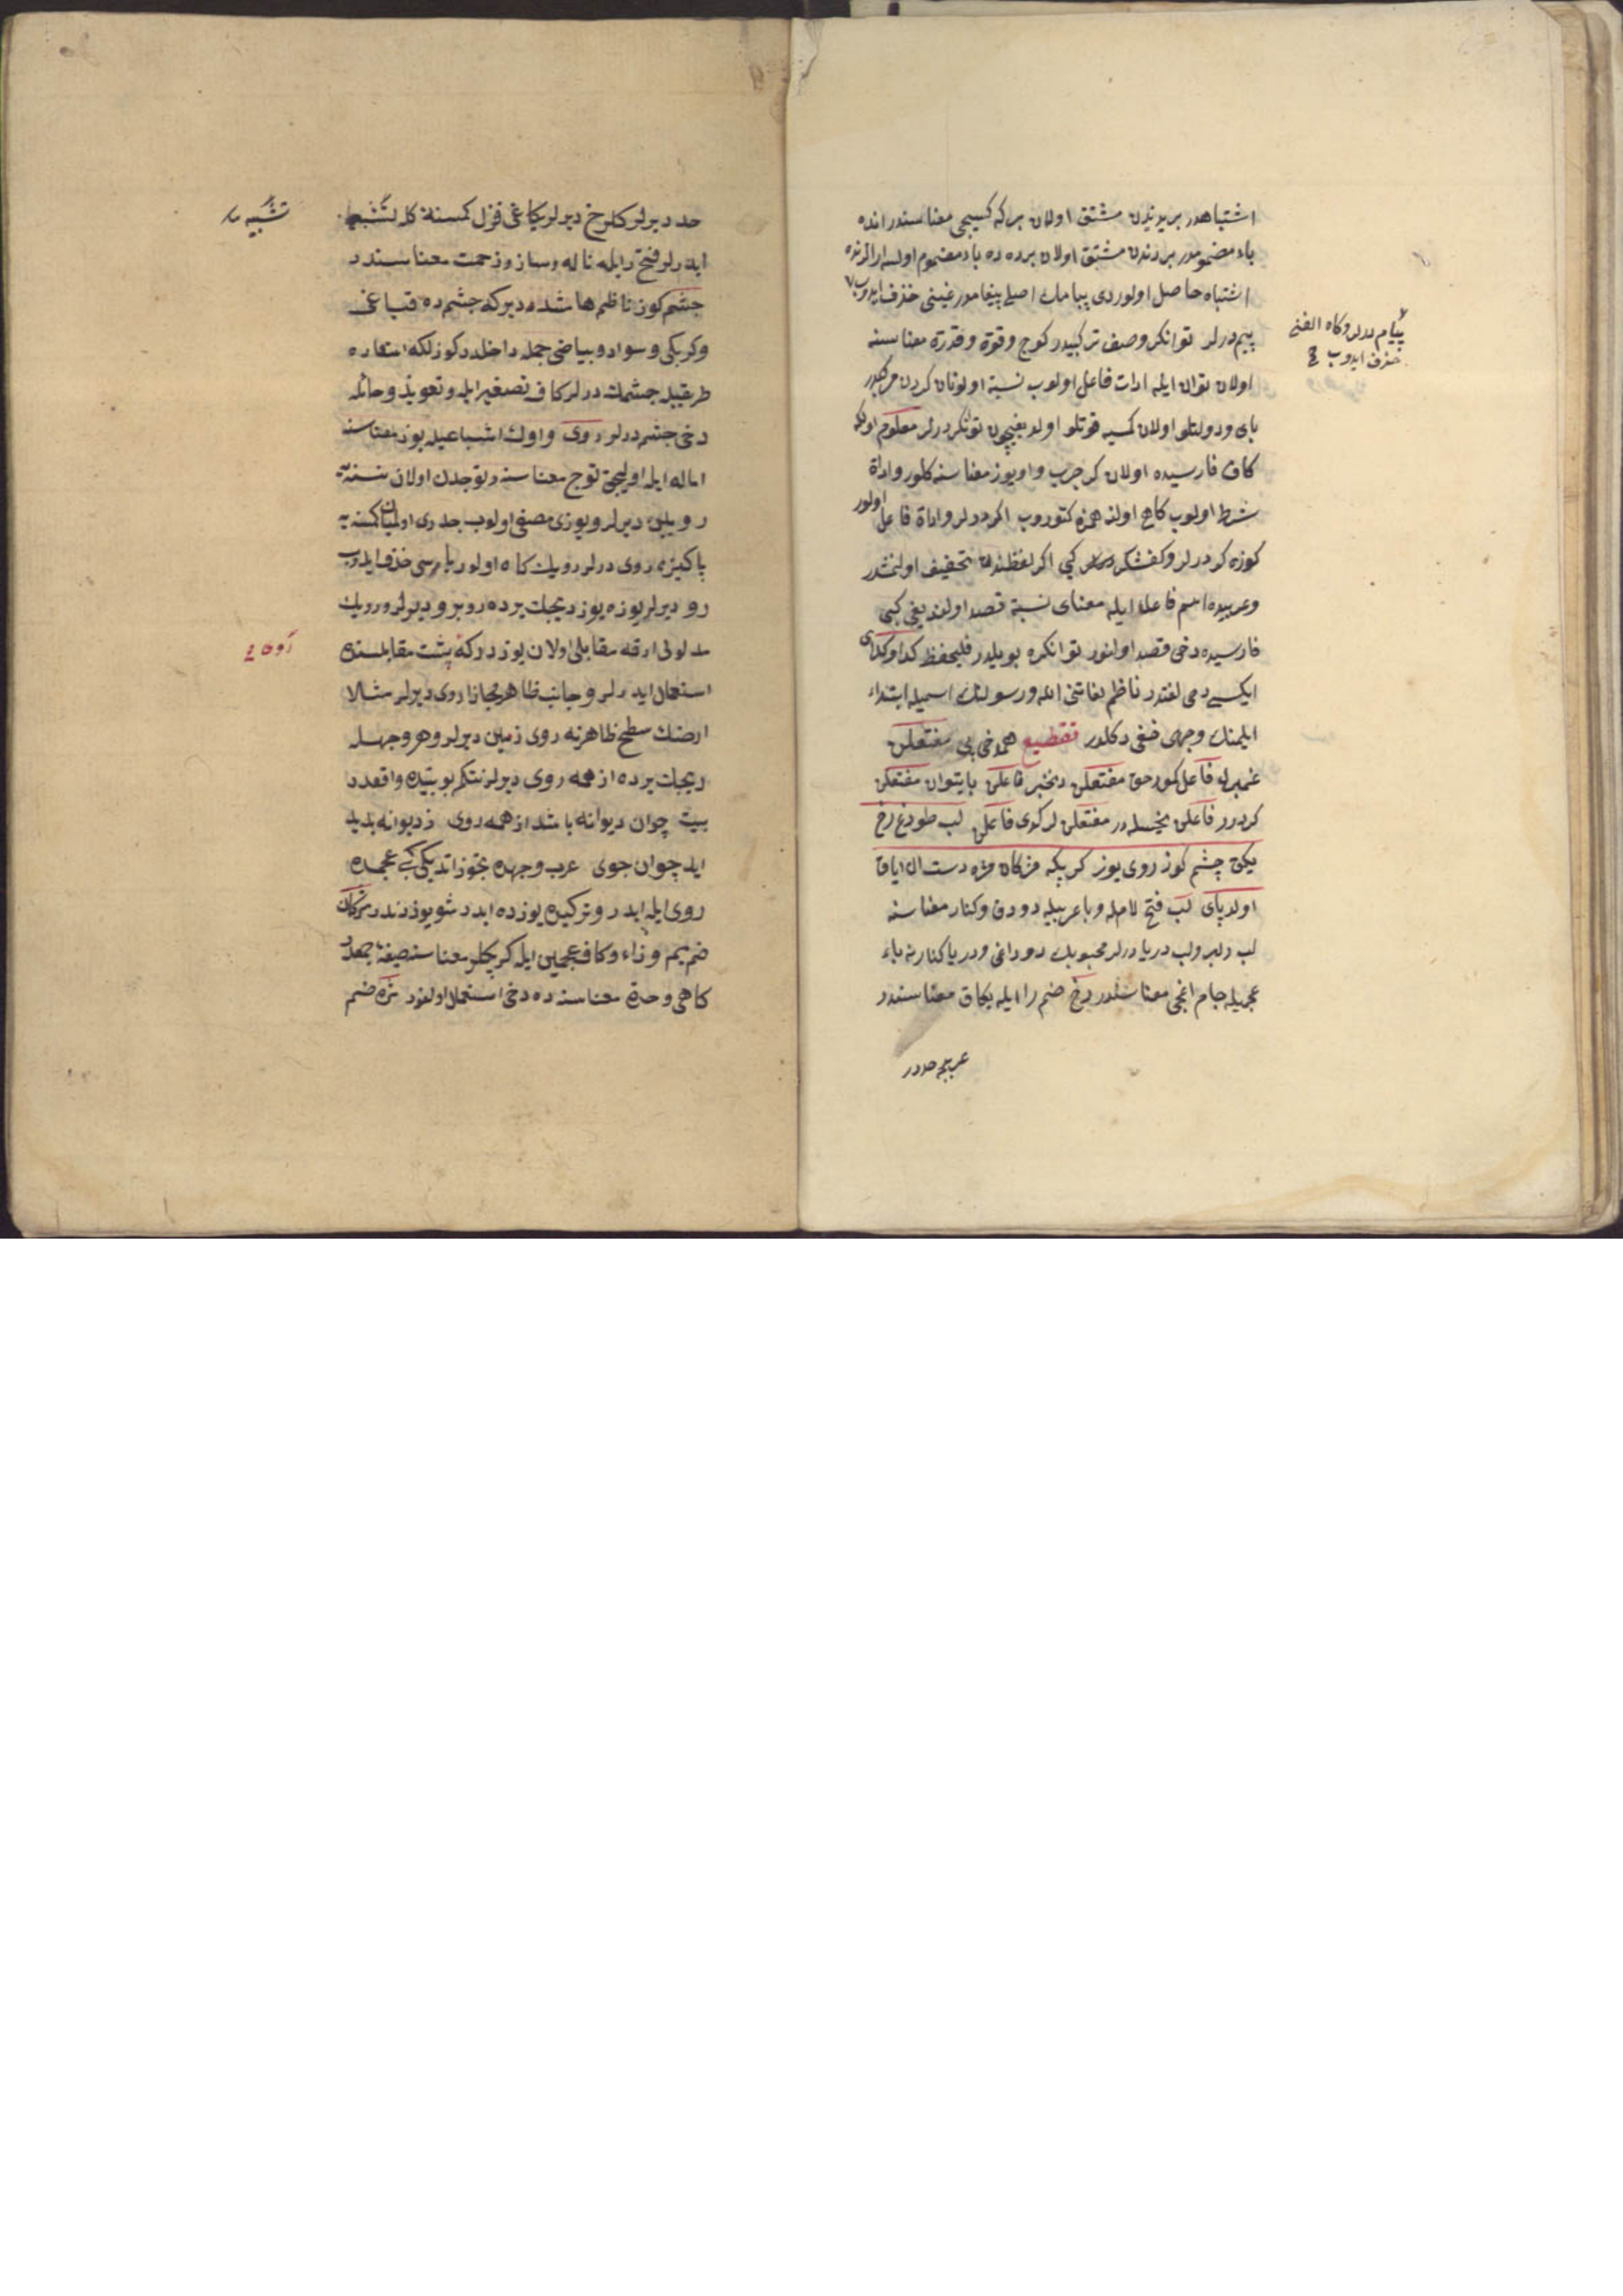 اشتباهدر بریدندن مشتق اولان بر که کسیجی معناسندر انده
باء مضمومدر بردندن مشتق اولان برده ده باء مضموم اولسه ارالرنده
اشتباه حاصل اولوردی پیامك اصلی پیغامدر غینی حذف ایدوب
پیام درلر وکاه الفی
حذف ایدوب
پیم درلر توانکر وصف ترکبیدر کوج وقوة وقدرة معناسنه
اولان توان ایله ادات فاعل اولوب نسبة اولونان کردن مرکبدر
بای ودولتلو اولان کمسیه قوتلو اولدیغیچون توانکر درلر معلوم اوله
کاف فارسیده اولان کر جرب واویوز معناسنه کلور واداة
شرط اولوب کاهی اولنه همزه کتوروب اکر درلر واداة فاعل اولور
کوزه کر درلر وکفشکر کبی اکر لفظندن تخفیف اولنمشدر
وعربیده اسم فاعل ایله معنای نسبة قصد اولندیغی کبی
فارسیده دخی قصد اولنور توانکرده بویلدر فلیحفظ کدا وکدای
ایکسی دمی لغتدر ناظم لغاتنی الله ورسولنك اسمیله ابتداء
ایلمنك وجهی خفی دکلدر تقطیع همدخی بی مفتعلن
غمبرله فاعل کورحق مفتعلن دخبر فاعلن بایتوان مفتعلن
کردرر فاعلن یخسلدر مفتعلن لرکدی فاعلن لب طوداغ رخ
یکاق چشم کوز روی یوز کرپیکه مژکان مژه دست ال ایاق
اولدپای لب فتح لامله وباء عربیله دوداق وکنار معناسنه
لب دلبر ولب دریا درلر محبوبك دوداغی ودریا کنارنه باء
عجمیله جام اغجی معناسندر رخ ضم را ایله یکاق معناسندر
عربیجه خددر
خد دیرلر کلرخ دیرلر یکاغی قزل کمسنه کله تشبیه
تشبیه
ایدرلر فتح رایله ناله وساز وزحمت معناسنددر
چشم کوز ناظم هاشده دیرکه چشم ده قباغی
وکربکی وسواد وبیاضی جمله داخلدر کوزلکه استعاره
طریقیله چشمك درلر کاف تصغیر ایله وتعویذ وحائله
دخی چشم درلر روی واوك اشباعیله یوز معناسنه
اماله ایله اولیجق توج معناسنه وتوجدن اولان نسنه یه
رویین دیرلر ویوزی مصفی اولوب جدری اولمیان کمسنه یه
پاکیزه روی درلر رویك کاه اولور یاسی حذف ایدوب
رو دیرلر یوزه یوز دیجك یرده روبرو دیرلر ورویك
مدلولی ارقه مقابلی اولان یوزدرکه پشت مقابلسنده
استعمال ایدرلر وجانب ظاهر مجازا روی دیرلر مثالا
ارضك سطح ظاهرنه روی زمین دیرلر وهر وجهله
دیجك یرده از همه روی دیرلر نتکم بو بیتده واقعدر
بیت چوان دیوانه باشد از همه روی ز دیوانه پدید
اید چوان جوی عرب وجهده تجوز ایتدیکی کبی عجمده
روی ایله ایدر وترکیده یوزده ایدر شو یوزدندر مژکان
ضم میم وزاء وکاف عجمین ایله کرپکلر معناسنه صیغهء جمعدر
کاهی وحدة معناسنده دخی استعمال اولنور مژه ضم